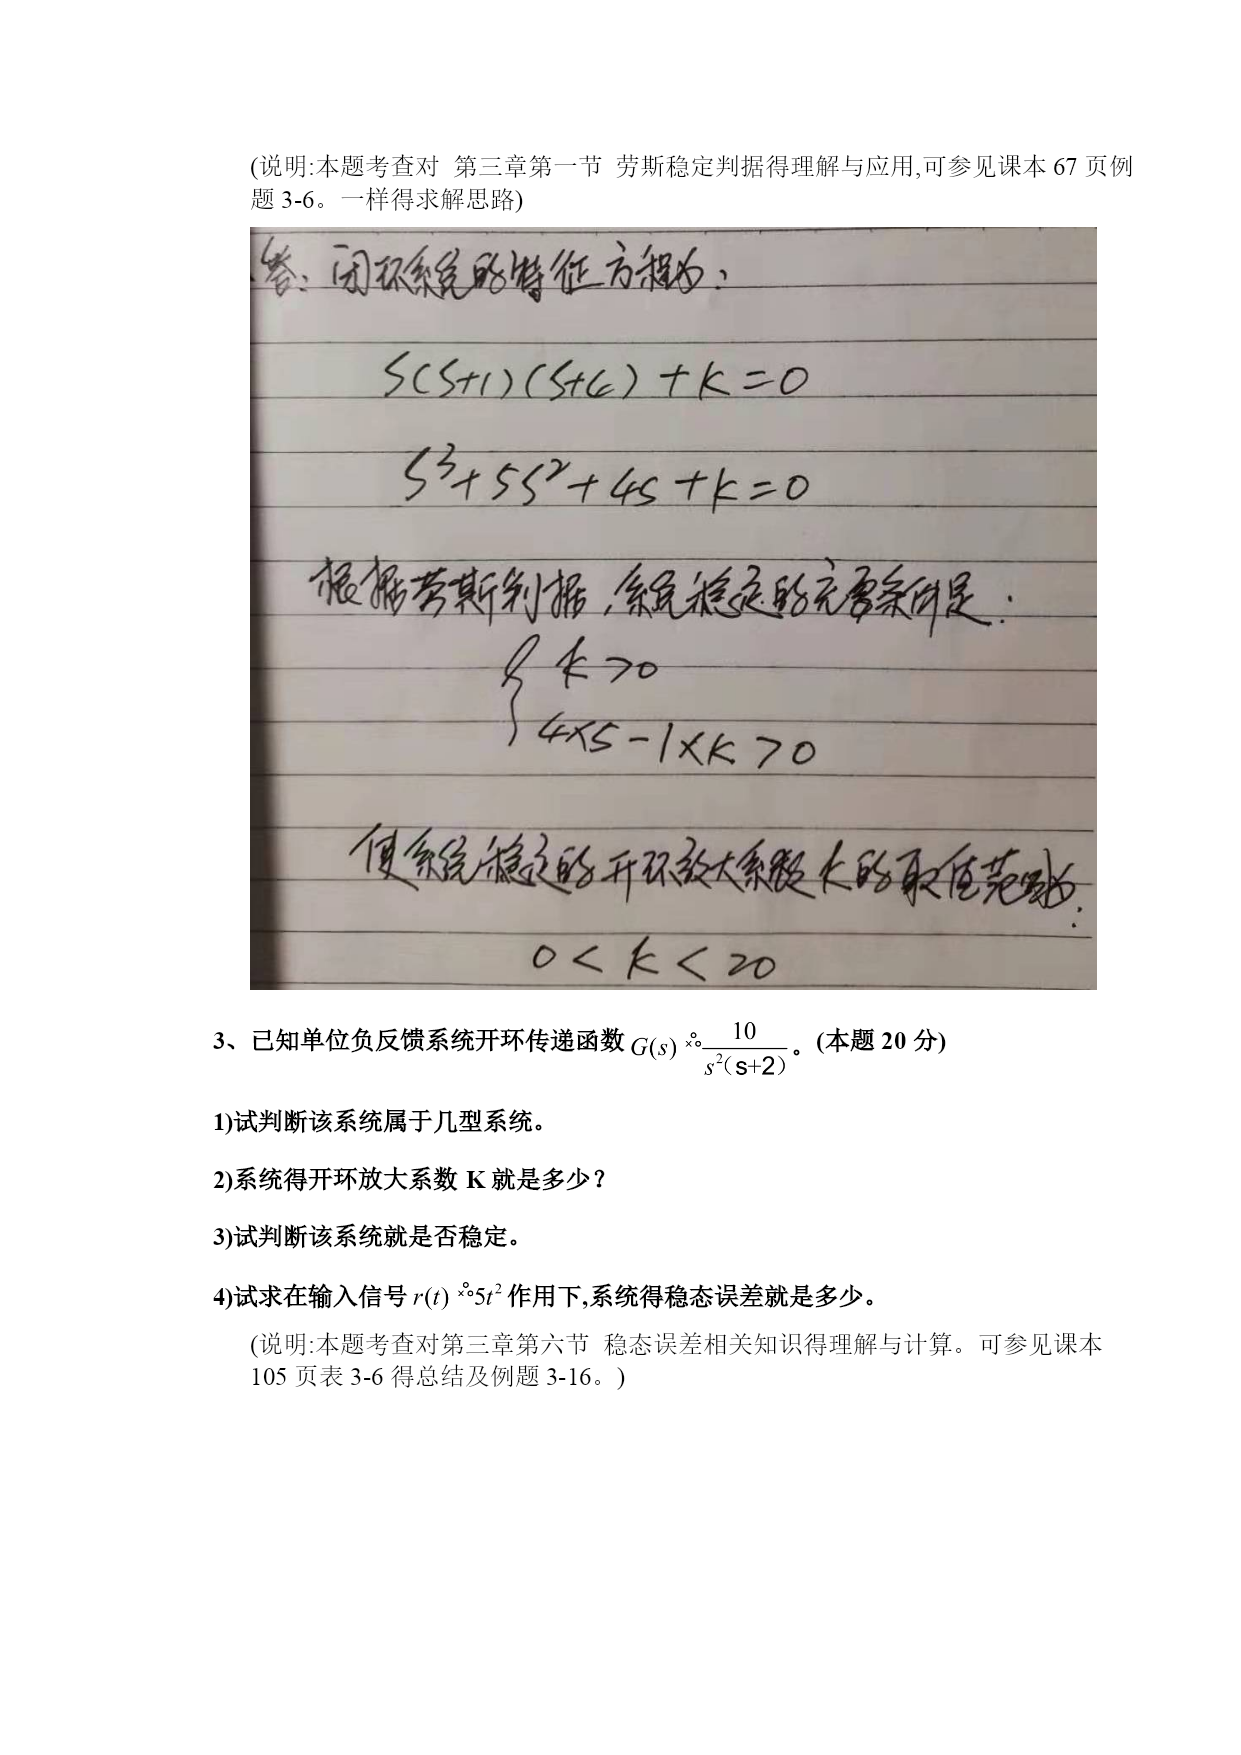 (说明:本题考查对 第三章第一节 劳斯稳定判据得理解与应用,可参见课本 67 页例
题 3-6。一样得求解思路)
答：闭环系统的特征方程为：
S(S+1)(S+4)+K=0
S³+5S²+4S+K=0
根据劳斯判据，系统稳定的充要条件是：
{ K>0
4×5-1×K>0
使系统稳定的开环放大系数K的取值范围为：
0<K<20
3、已知单位负反馈系统开环传递函数 G(s) 10/s²(s+2)。(本题 20 分)
1)试判断该系统属于几型系统。
2)系统得开环放大系数 K 就是多少?
3)试判断该系统就是否稳定。
4)试求在输入信号 r(t) 5t² 作用下,系统得稳态误差就是多少。
(说明:本题考查对第三章第六节 稳态误差相关知识得理解与计算。可参见课本
105 页表 3-6 得总结及例题 3-16。)